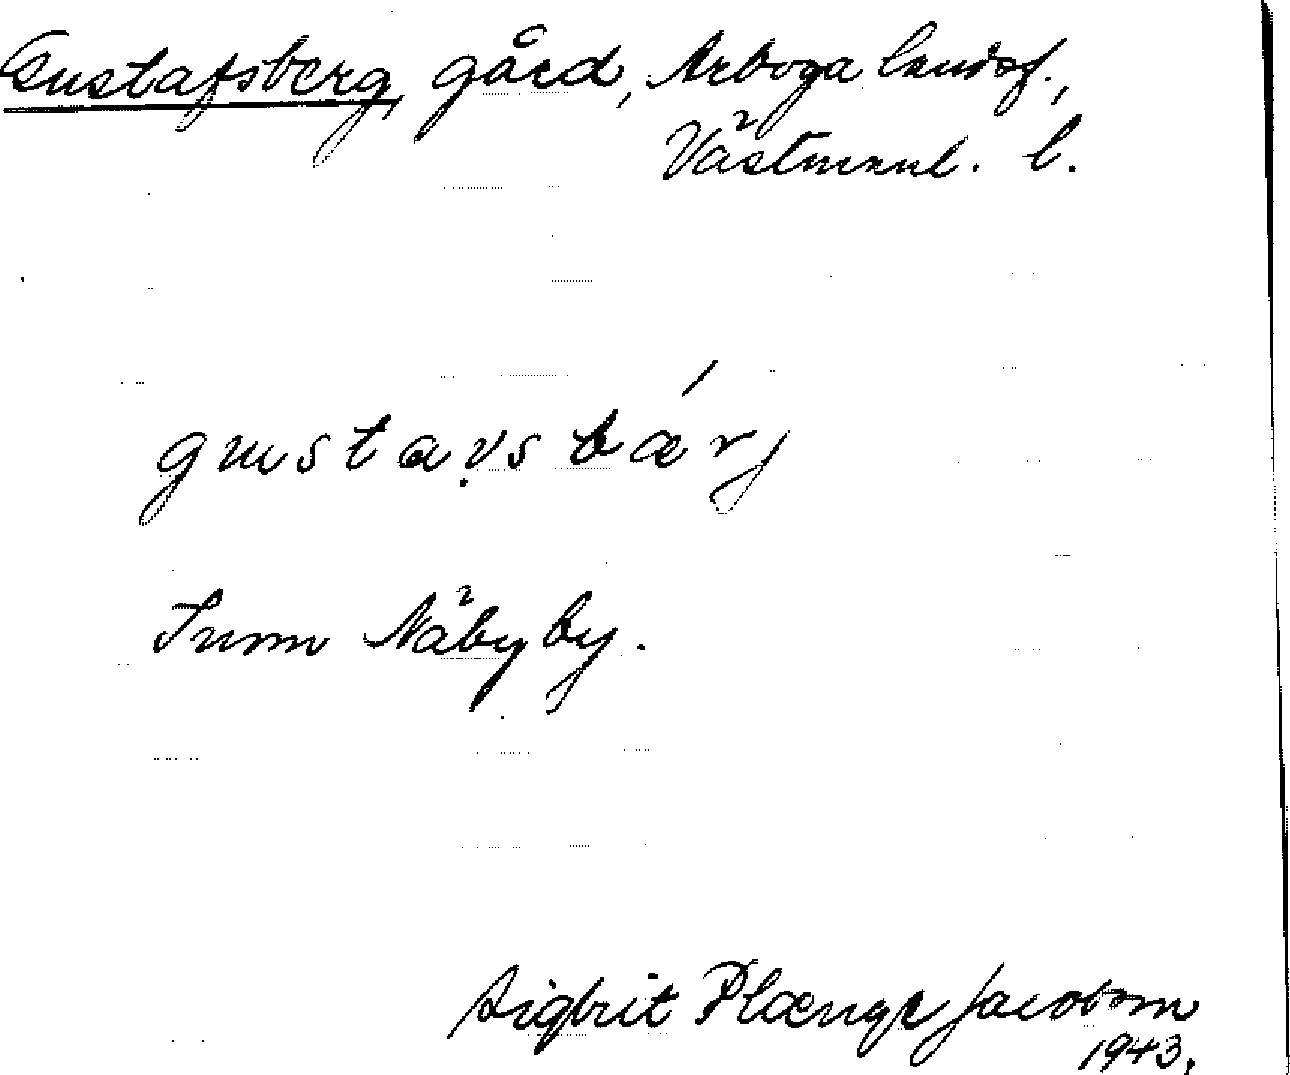 Gustafsberg, gård, Arboga landsf.,
Västmanl. l.
gustavsbærj
Inom Näbyby.
Sigbrit Plænge Jacobson
1943.